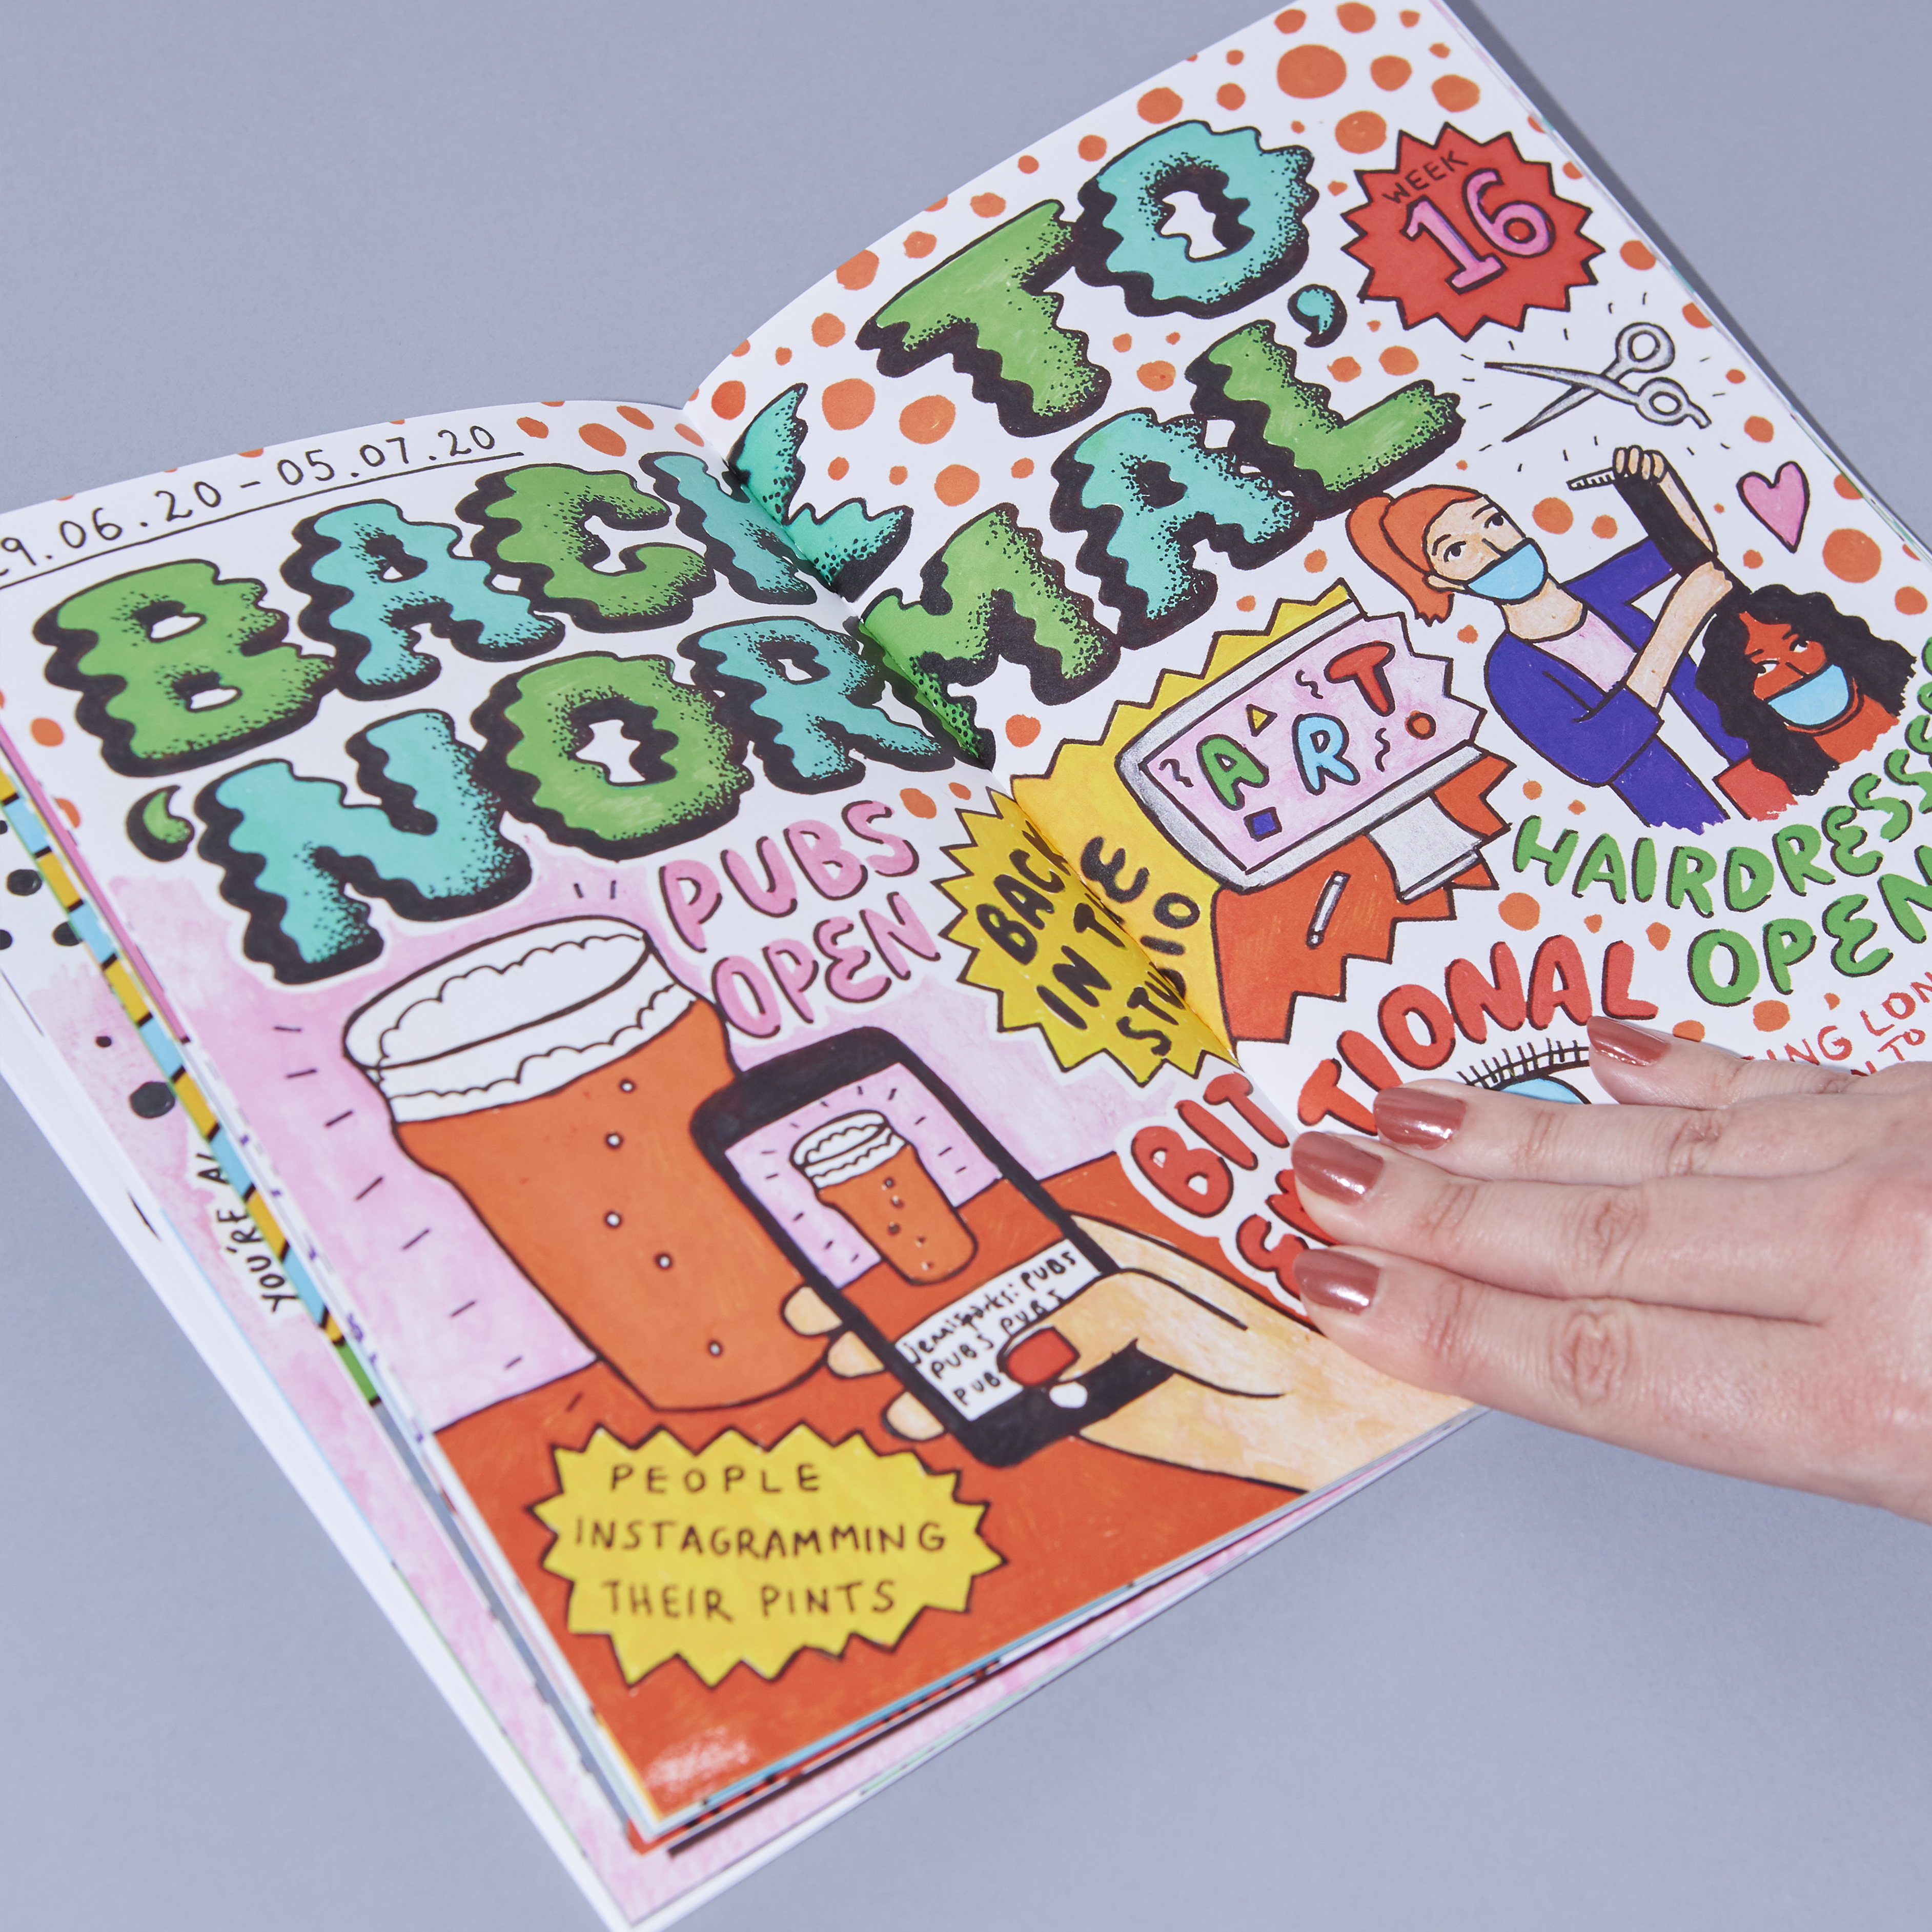 29.06.20 - 05.07.20
BACK TO
'NORMAL'
WEEK
16
PUBS
OPEN
BACK
IN THE
STUDIO
ART
HAIRDRESSERS
OPEN
BIT
EMOTIONAL
jemisparks: PUBS
PUBS PUBS
PUB
PEOPLE
INSTAGRAMMING
THEIR PINTS
YOU'RE